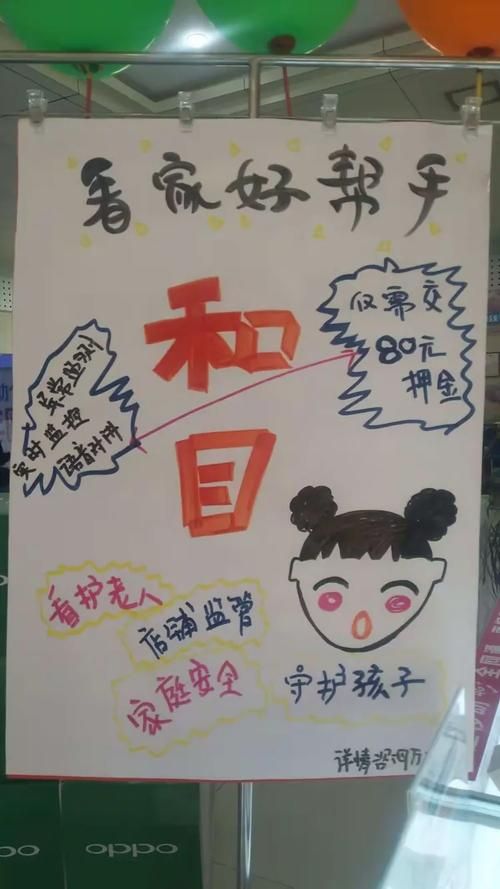 看家好帮手
和
目
仅需交
80元
押金
异常监测
实时监控
语音对讲
看护老人
店铺监管
家庭安全
守护孩子
详情咨询万
oppo